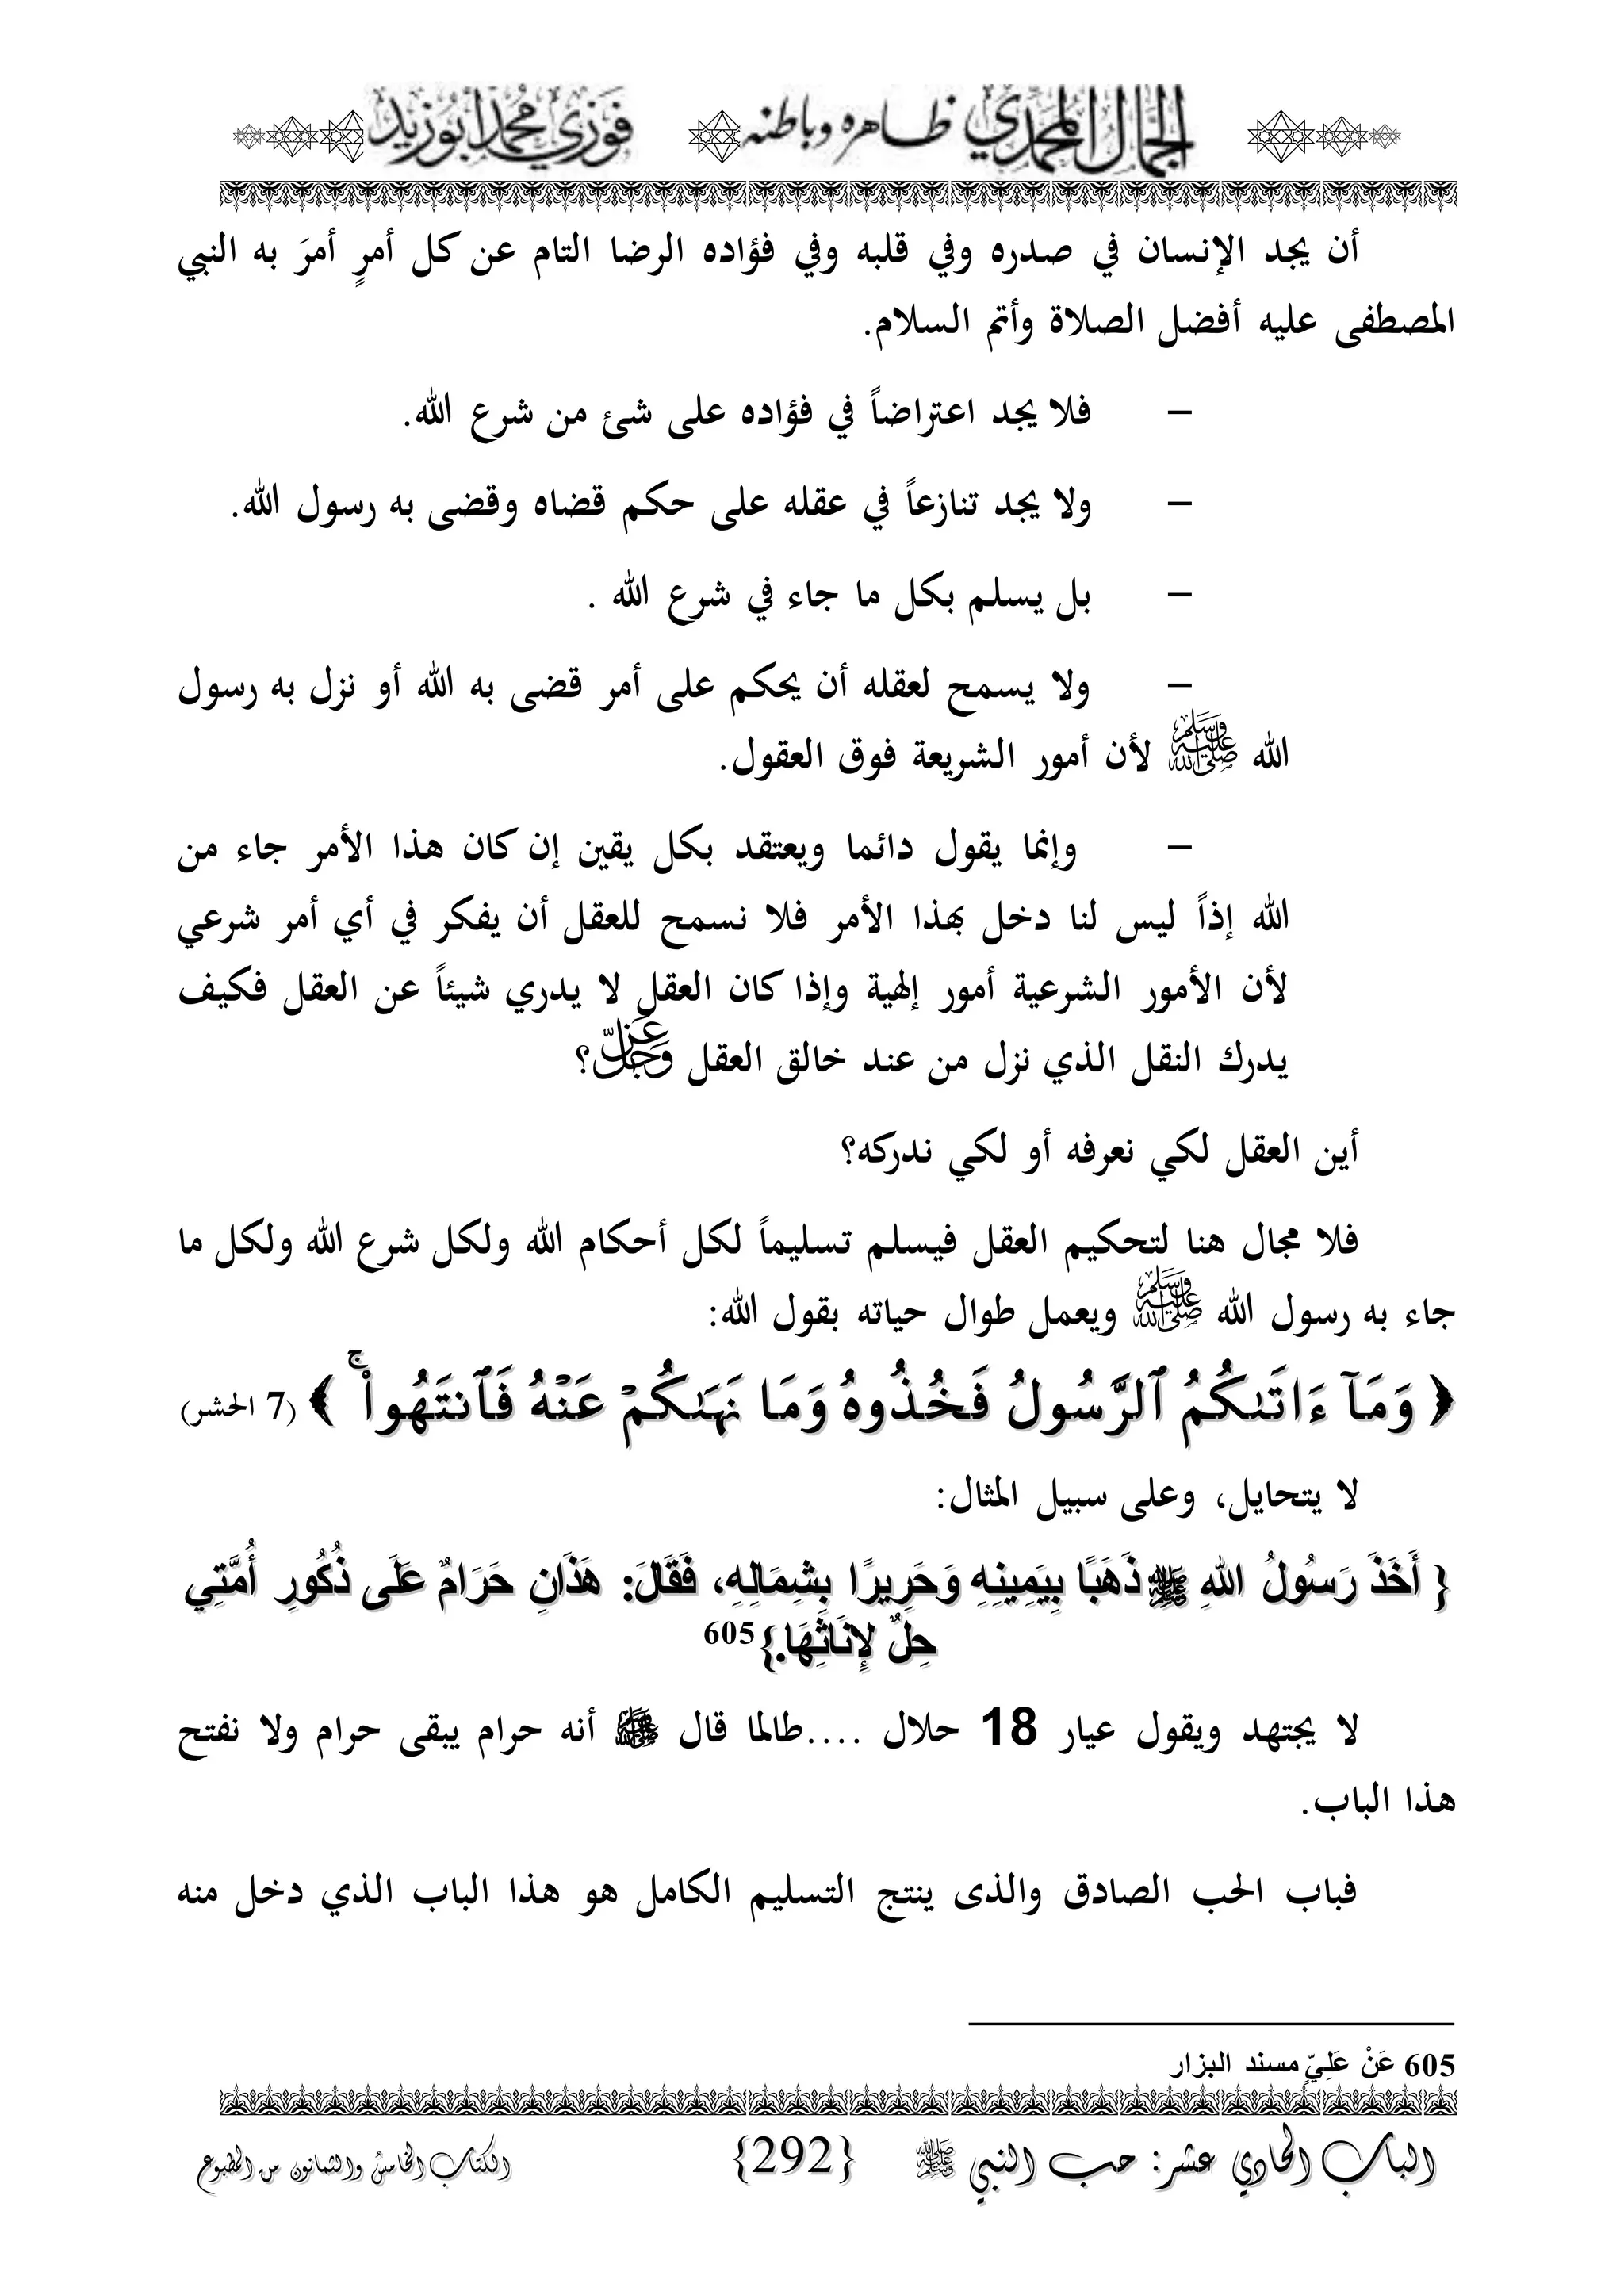 الجمال المحمدي ظاهره وباطنه فوزي محمد أبوزيد
أن يجد الإنسان في صدره وفي قلبه وفي فؤاده الرضا التام عن كل أمرٍ أمرَ به النبي
المصطفى عليه أفضل الصلاة وأتم السلام.
– فلا يجد اعتراضاً في فؤاده على شئ من شرع الله.
– ولا يجد تنازعاً في عقله على حكم قضاه وقضى به رسول الله.
– بل يسلم بكل ما جاء في شرع الله .
– ولا يسمح لعقله أن يحكم على أمر قضى به الله أو نزل به رسول
الله ﷺ لأن أمور الشريعة فوق العقول.
– وإنما يقول دائما ويعتقد بكل يقين إن كان هذا الأمر جاء من
الله إذاً ليس لنا دخل بهذا الأمر فلا نسمح للعقل أن يفكر في أي أمر شرعي
لأن الأمور الشرعية أمور إلهية وإذا كان العقل لا يدري شيئاً عن العقل فكيف
يدرك النقل الذي نزل من عند خالق العقل عَزَّ وَجَلَّ؟
أين العقل لكي نعرفه أو لكي ندركه؟
فلا مجال هنا لتحكيم العقل فيسلم تسليماً لكل أحكام الله ولكل شرع الله ولكل ما
جاء به رسول الله ﷺ ويعمل طوال حياته بقول الله:
﴿ وَمَآ ءَاتَىٰكُمُ ٱلرَّسُولُ فَخُذُوهُ وَمَا نَهَىٰكُمْ عَنْهُ فَٱنتَهُوا۟ ۚ ﴾ (7 الحشر)
لا يتحايل، وعلى سبيل المثال:
{ أَخَذَ رَسُولُ اللهِ ﷺ ذَهَبًا بِيَمِينِهِ وَحَرِيرًا بِشِمَالِهِ، فَقَالَ: هَذَانِ حَرَامٌ عَلَى ذُكُورِ أُمَّتِي
حِلٌ لِإِنَاثِهَا.}605
لا يجتهد ويقول عيار 18 حلال ....طالما قال ﷺ أنه حرام يبقى حرام ولا نفتح
هذا الباب.
فباب الحب الصادق والذى ينتج التسليم الكامل هو هذا الباب الذي دخل منه
605 عَنْ عَلِيٍّ مسند البزار
الباب الحادي عشر: حب النبي ﷺ {292} الكتاب الخامس والثمانون من المطبوع